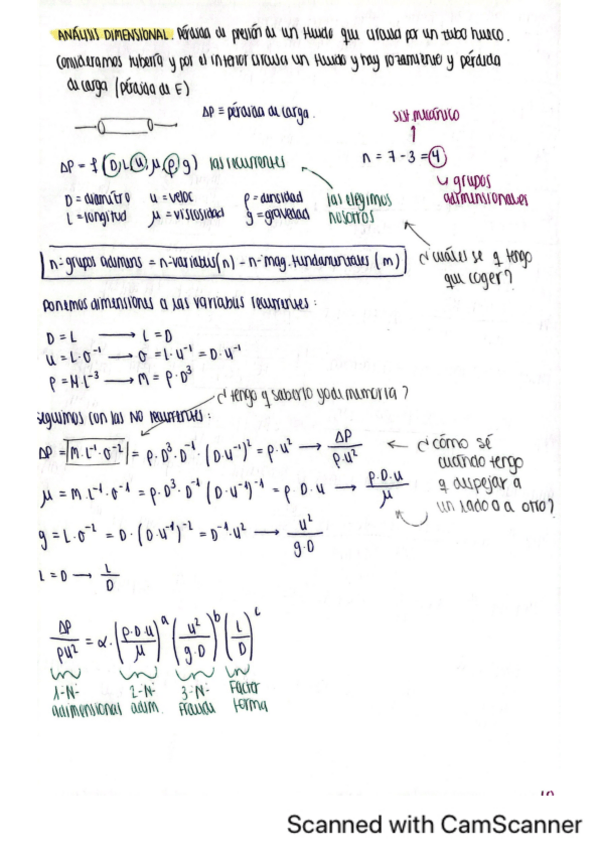 ANÁLISIS DIMENSIONAL. Pérdida de presión de un fluido que circula por un tubo hueco.
Consideramos tubería y por el interior circula un fluido y hay rozamiento y pérdida
de carga (pérdida de E)
ΔP ≡ pérdida de carga.
sist. mecánico
ΔP = f (D, L, u, μ, ρ, g) las recurrentes
n = 7 - 3 = 4
4 grupos
adimensionales
D = diámetro u = veloc ρ = densidad
L = longitud μ = viscosidad g = gravedad
las elegimos
nosotros
n= grupos adimens = n-variables(n) - n-mag. fundamentales (m)
¿cuáles se q tengo
que coger?
Ponemos dimensiones a las variables recurrentes:
D = L → L = D
u = L·σ⁻¹ → σ = L·u⁻¹ = D·u⁻¹
ρ = M·L⁻³ → M = ρ·D³
¿tengo q saberlo yo de memoria?
Seguimos con las NO recurrentes:
ΔP = M·L⁻¹·σ⁻² = ρ·D³·D⁻¹·(D·u⁻¹)² = ρ·u² → ΔP/ρ·u²
¿cómo sé
cuándo tengo
q despejar a
un lado o a otro?
μ = M·L⁻¹·σ⁻¹ = ρ·D³·D⁻¹(D·u⁻¹)⁻¹ = ρ·D·u → ρ·D·u/μ
g = L·σ⁻² = D·(D·u⁻¹)⁻² = D⁻¹·u² → u²/g·D
L = D → L/D
ΔP/ρu² = α·(ρ·D·u/μ)ᵃ (u²/g·D)ᵇ (L/D)ᶜ
1-Nº 2-Nº 3-Nº Factor
adimensional adim. Fraude forma
10
Scanned with CamScanner